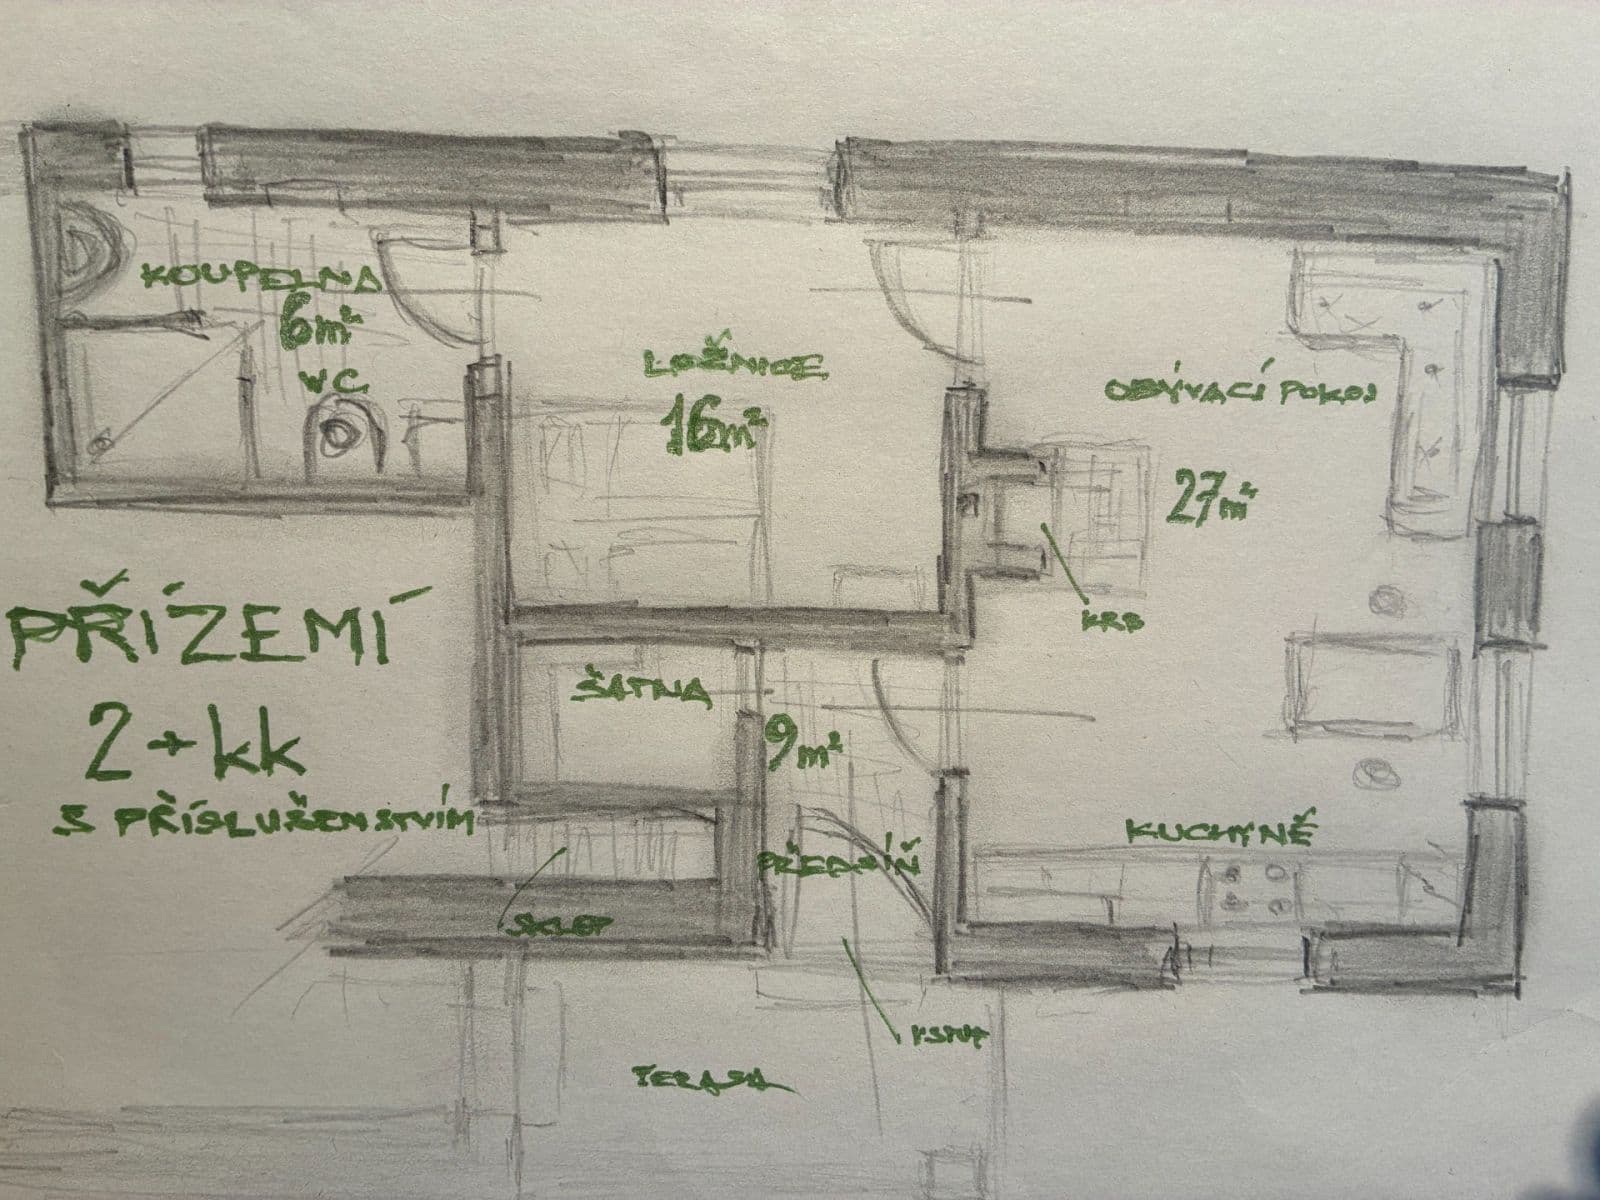 KOUPELNA
6m²
WC
LOŽNICE
16m²
OBÝVACÍ POKOJ
27m²
KRB
PŘÍZEMÍ
2+kk
S PŘÍSLUŠENSTVÍM
ŠATNA
9m²
PŘEDSÍŇ
KUCHYNĚ
SKLEP
VSTUP
TERASA